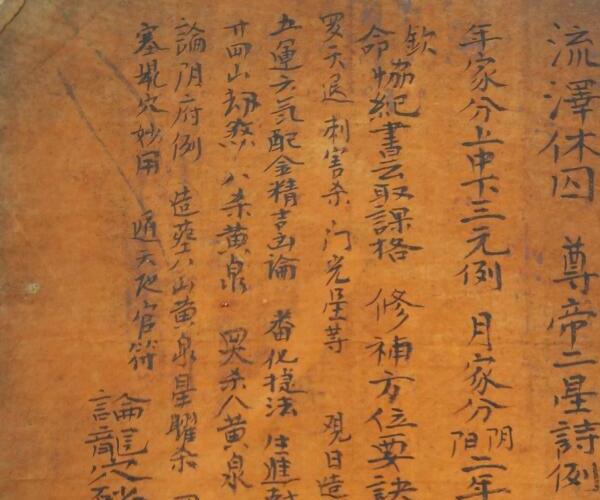 流澤休囚　尊帝二星詩例
年家分上中下三元例　月家分陰陽二年
欽命協紀書云取課格　修補方位要訣
罗天退　刺害杀　门光星等　观日造
五運六氣配金精吉凶論　番化捷法
廿四山劫煞　八杀黄泉　四杀八黄泉
論阴府例　造葬八山黄泉星曜杀
塞堤穴妙用　通天地官符
論龍穴砂